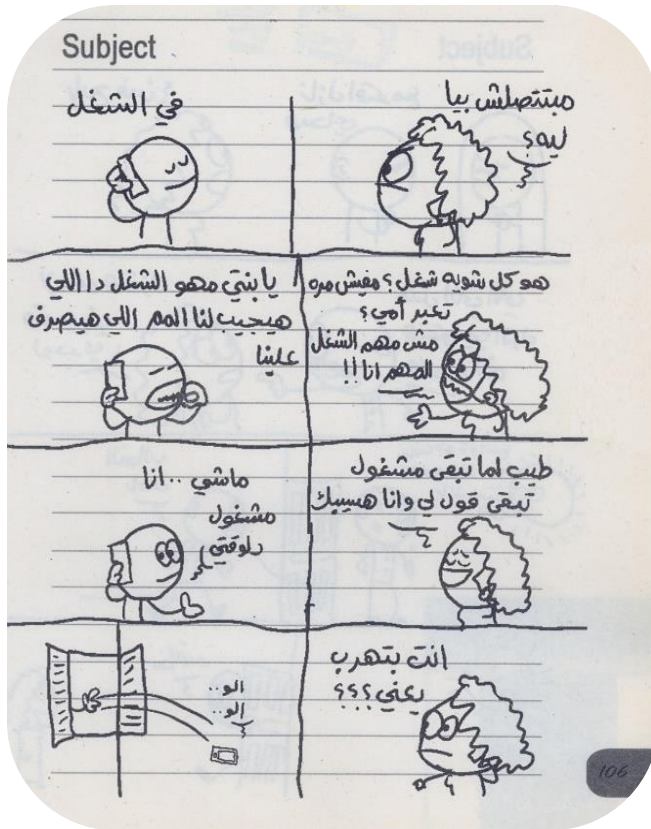 Subject
مبتتصلش بيا
ليه؟
في الشغل
هو كل شويه شغل؟ مفيش مره
تعبر أمي؟
مش مهم الشغل
المهم انا!!
يا بنتي مهو الشغل دا اللي
هيجيب لنا الهم اللي هيصرف
علينا
طيب لما تبقى مشغول
تبقى قول لي وانا هسيبك
ماشي .. انا
مشغول
دلوقتي
انت بتهرب
يعني؟؟؟
الو..
الو..
106